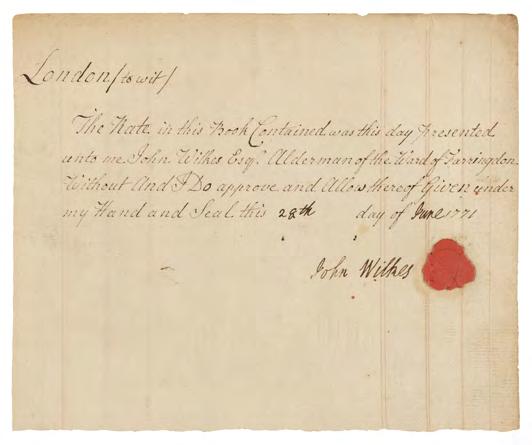 London / to wit /
The Rate in this Book Contained was this day presented
unto me John Wilkes Esqr. Alderman of the Ward of Farringdon
Without And I Do approve and Allow thereof Given under
my Hand and Seal this 28th day of June 1771
John Wilkes